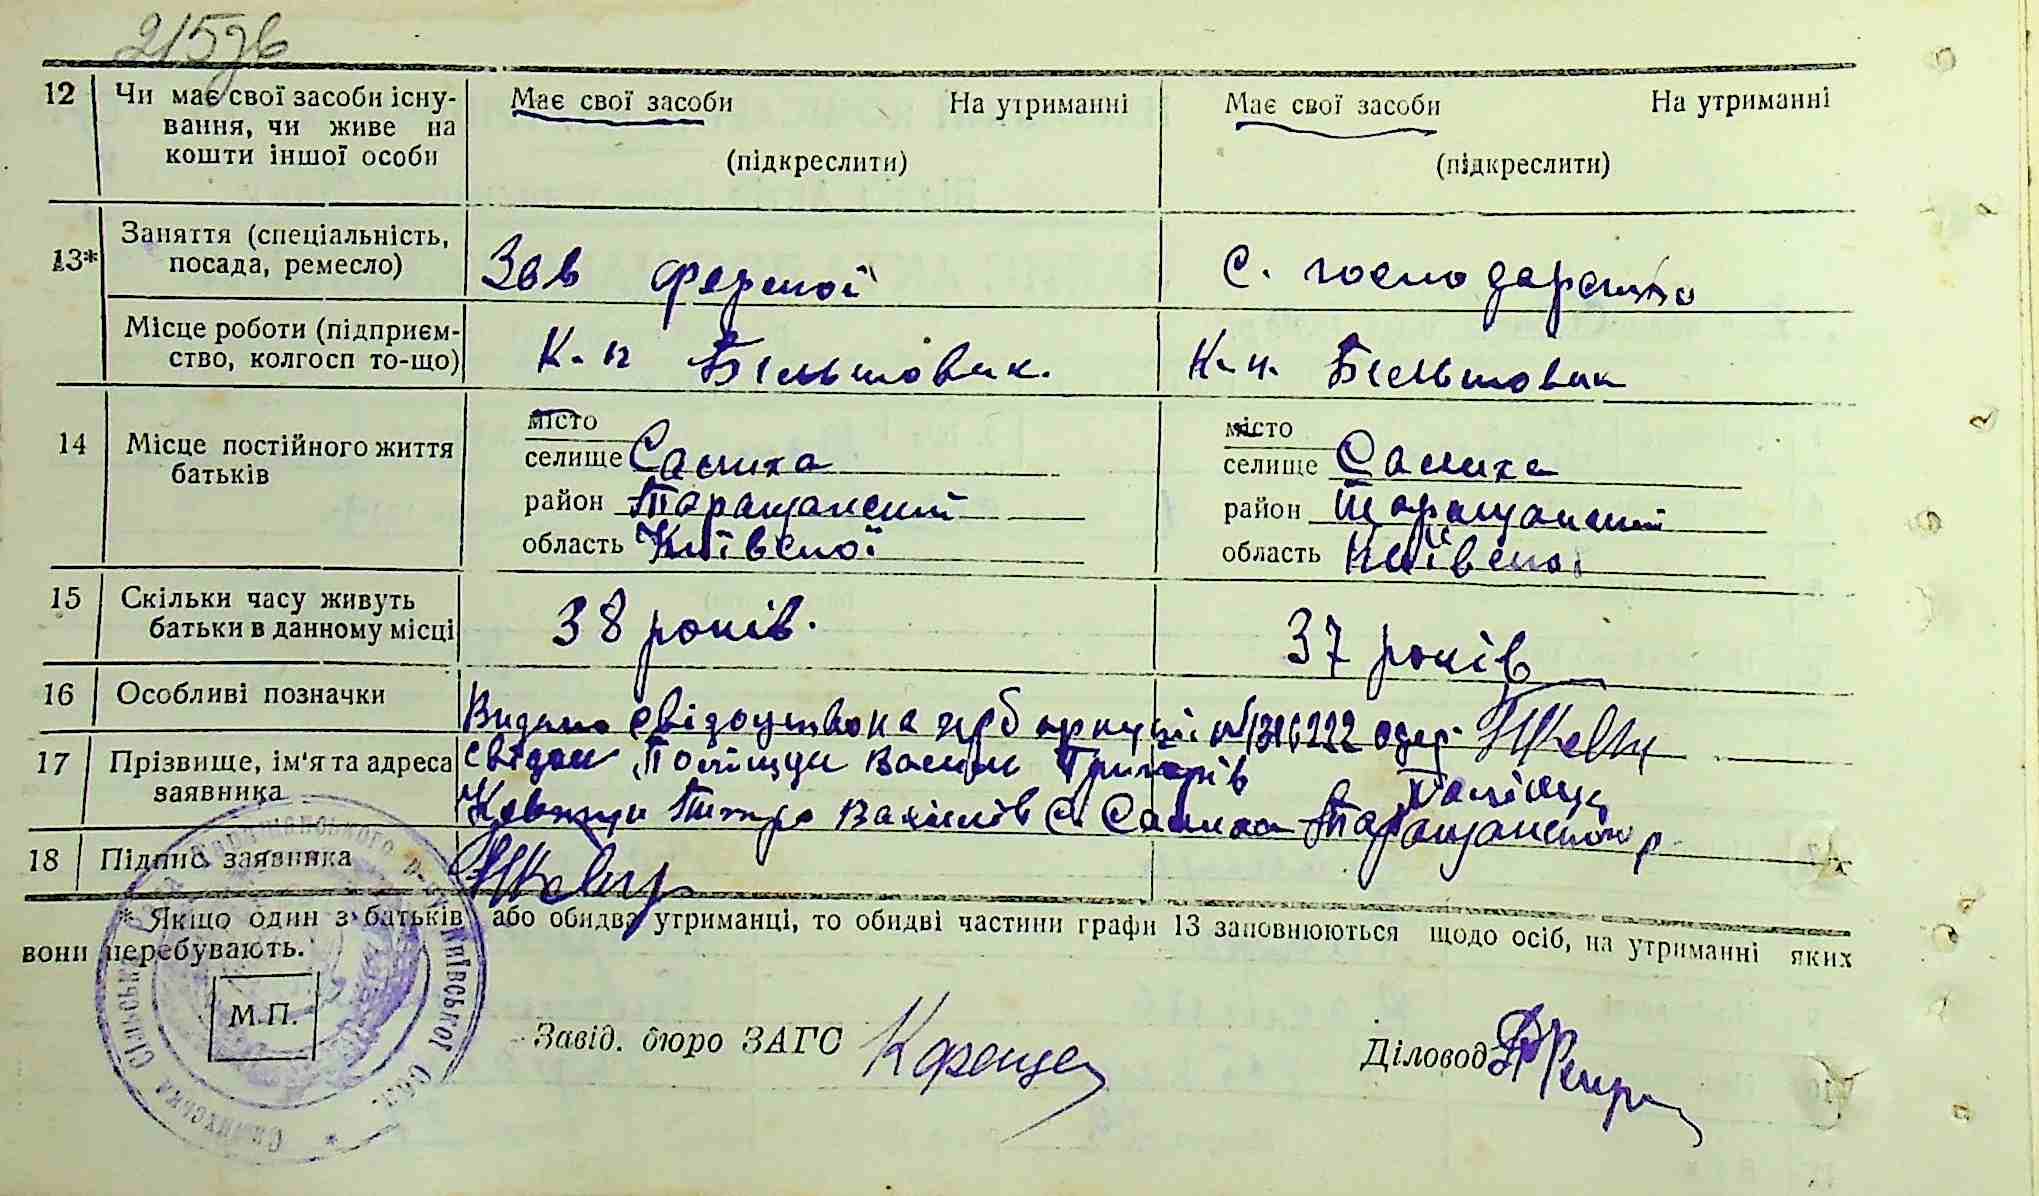 215зв
12 Чи має свої засоби існу-
вання, чи живе на
кошти іншої особи
Має свої засоби На утриманні
(підкреслити)
Має свої засоби На утриманні
(підкреслити)
13* Заняття (спеціальність,
посада, ремесло)
Зав фермої
С. господарство
Місце роботи (підприєм-
ство, колгосп то-що)
К-п Більшовик.
К-п. Більшовик
14 Місце постійного життя
батьків
місто
селище Салиха
район Таращанский
область Київскої
місто
селище Салиха
район Таращанский
область Київскої
15 Скільки часу живуть
батьки в данному місці
38 років.
37 років
16 Особливі позначки
Видано свідоцтво на герб аркуші №1316222 одер.
17 Прізвище, ім'я та адреса
заявника
свідки Поліщук Василь Григорів
Петро Василів с. Салиха Таращанского р
18 Підпис заявника
* Якщо один з батьків або обидва утриманці, то обидві частини графи 13 заповнюються щодо осіб, на утриманні яких
вони перебувають.
М.П.
Салихська Сільська Рада Таращанського р-ну Київської Обл. *
Завід. бюро ЗАГС
Діловод